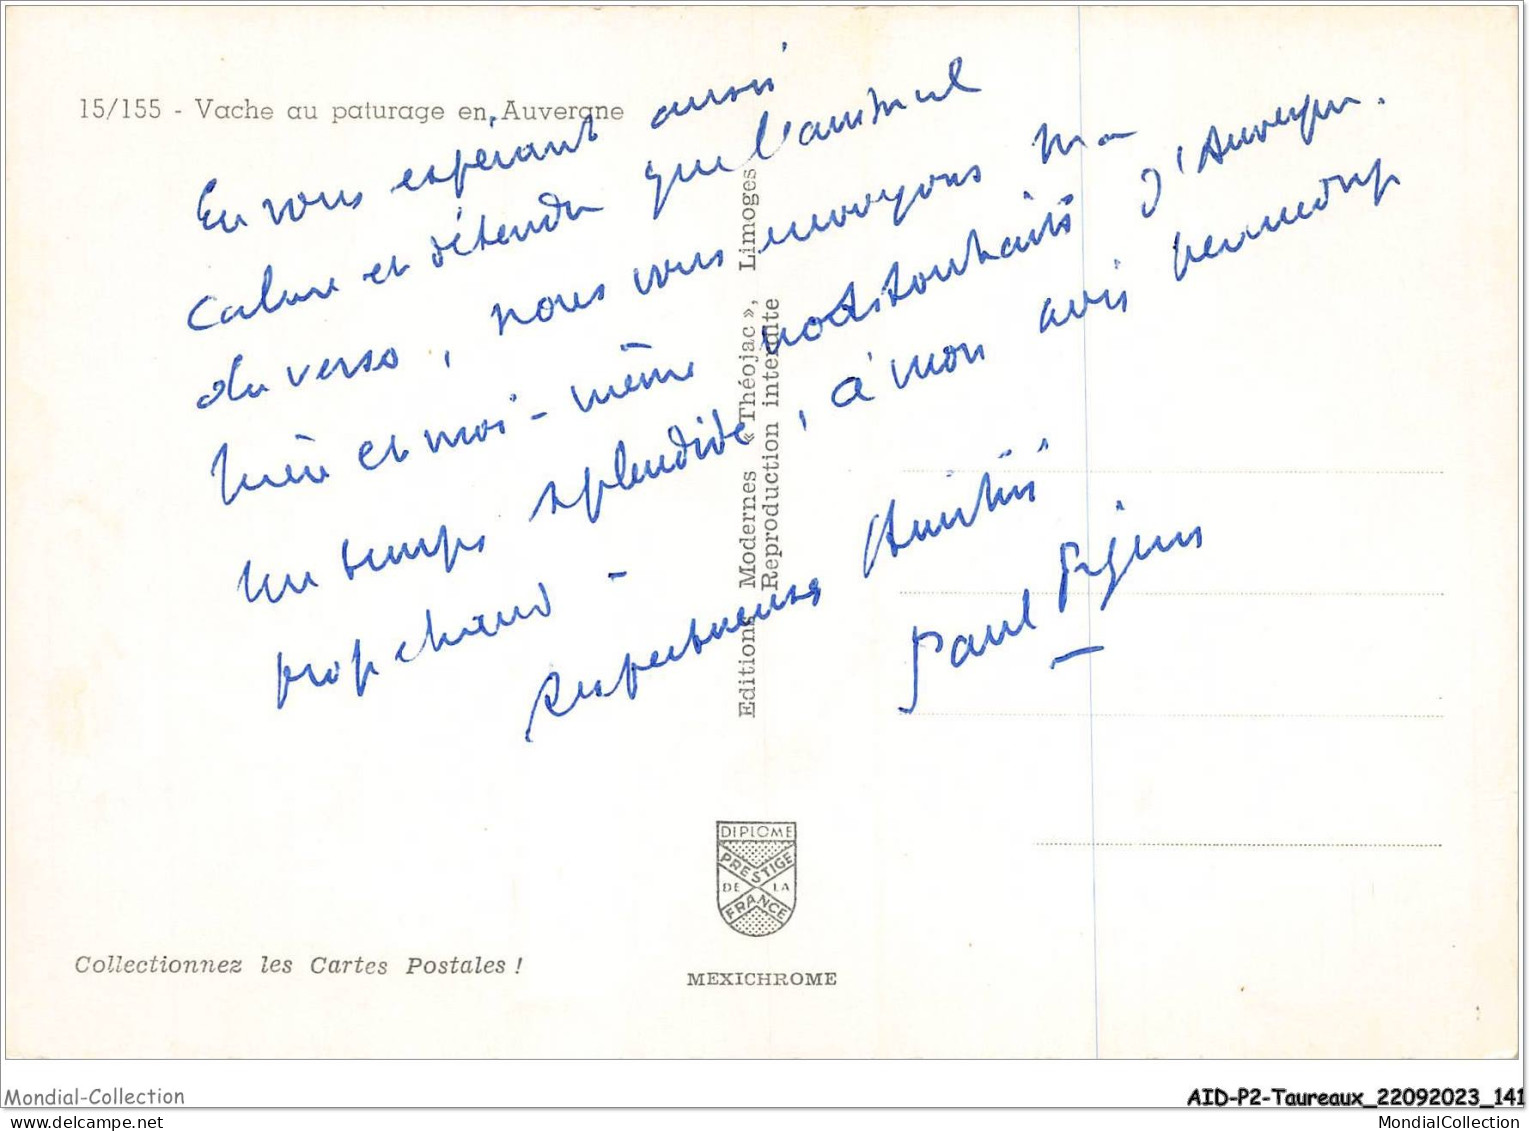 15/155 - Vache au paturage en Auvergne
En vous espérant aussi
calme et détendu que l'animal
du verso, nous vous envoyons ma
mère et moi-même nos souhaits d'Auvergne.
Un temps splendide, à mon avis beaucoup
trop chaud -
Respectueuses Amitiés
Paul
Editions Modernes « Théojac », Limoges
Reproduction interdite
DIPLOME
PRESTIGE
DE LA
FRANCE
Collectionnez les Cartes Postales !
MEXICHROME
Mondial-Collection
AID-P2-Taureaux_22092023_141
MondialCollection